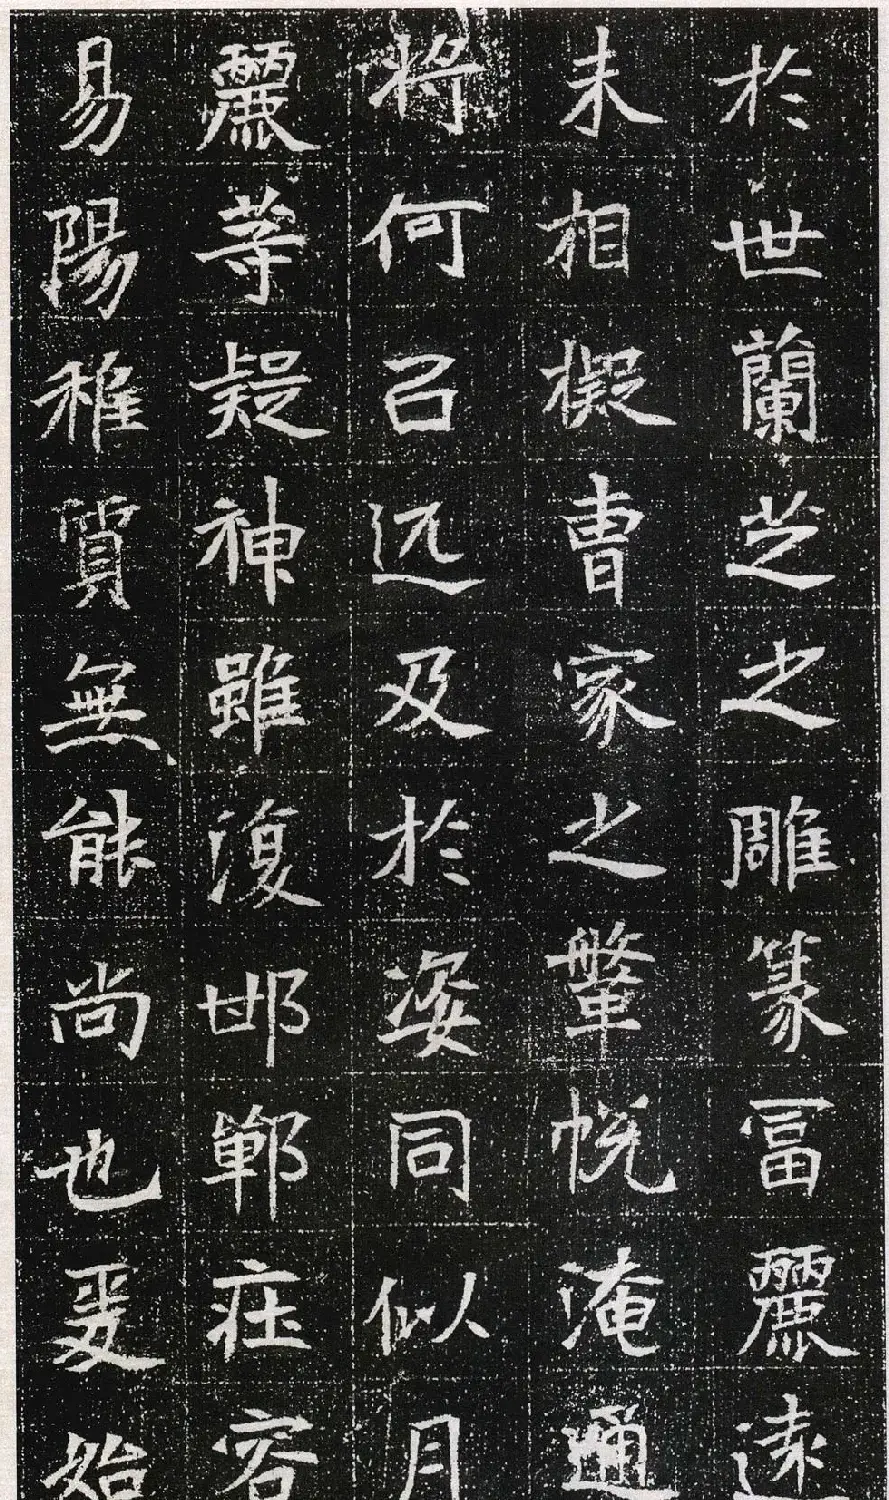 於世蘭芝之雕篆富麗遠
未相擬曹家之鞶帨淹通
將何召远及於姿同似月
麗等疑神雖復邯鄲莊容
易陽稚質無能尚也爰始